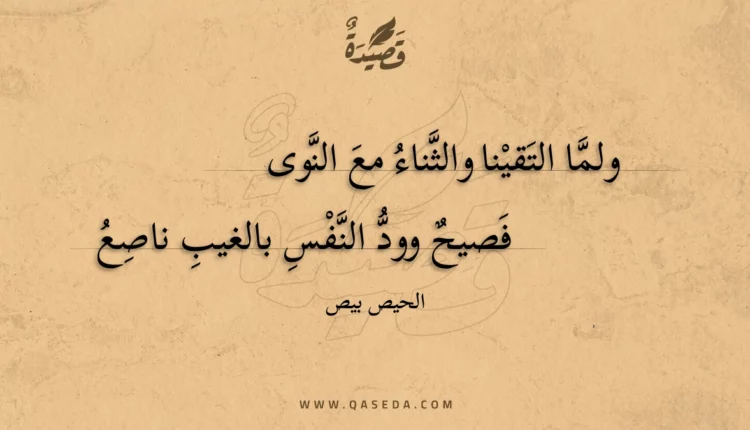 قَصِيدَةٌ
ولمَّا التَقيْنا والثَّناءُ معَ النَّوى
فَصيحٌ وودُّ النَّفْسِ بالغيبِ ناصِعُ
الحيص بيص
WWW.QASEDA.COM